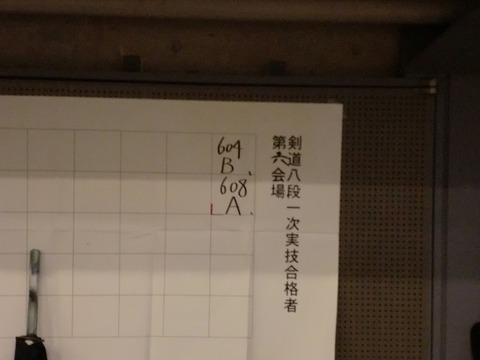 剣道八段一次実技合格者
第六会場
604
B
608
A